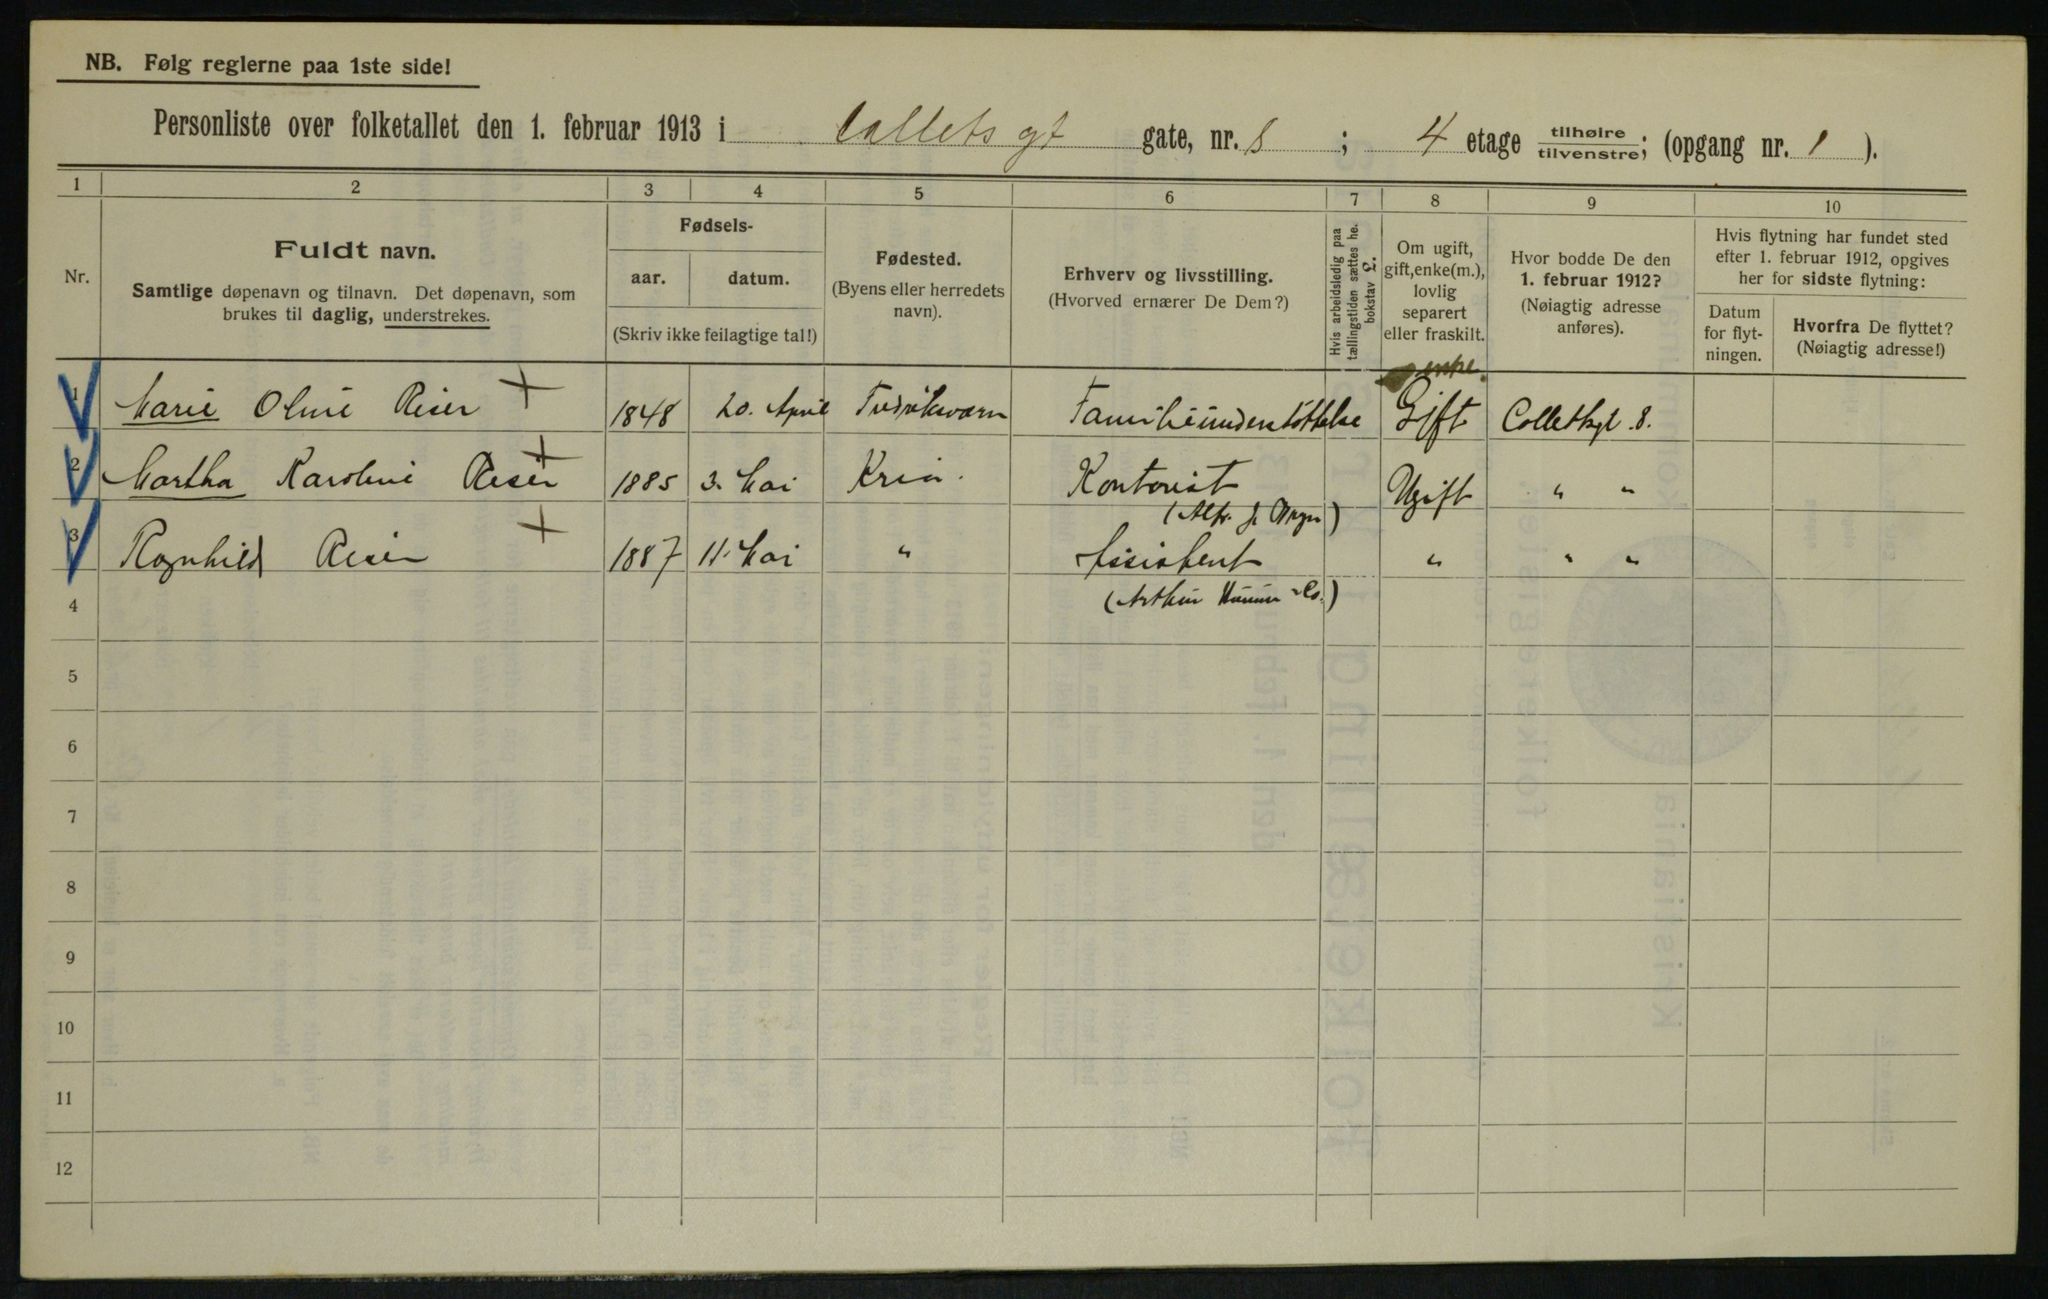 NB. Følg reglerne paa 1ste side!
Personliste over folketallet den 1. februar 1913 i Collets gt gate, nr. 8 ; 4 etage tilhøire / tilvenstre; (opgang nr. 1 ).
1 2 3 4 5 6 7 8 9 10
Nr.
Fuldt navn.
Samtlige døpenavn og tilnavn. Det døpenavn, som
brukes til daglig, understrekes.
Fødsels-
aar. datum.
(Skriv ikke feilagtige tal!)
Fødested.
(Byens eller herredets
navn).
Erhverv og livsstilling.
(Hvorved ernærer De Dem?)
Hvis arbeidsledig paa
tællingstiden sættes he.
bokstav L.
Om ugift,
gift, enke(m.),
lovlig
separert
eller fraskilt.
Hvor bodde De den
1. februar 1912?
(Nøiagtig adresse
anføres).
Hvis flytning har fundet sted
efter 1. februar 1912, opgives
her for sidste flytning:
Datum
for flyt-
ningen.
Hvorfra De flyttet?
(Nøiagtig adresse!)
enke.
1 Marie Oline Reier 1848 20. April Fredriksværn Familieunderstøttelse Gift Colletsgt. 8.
2 Martha Karoline Reier 1885 3. Mai Kria. Kontorist Ugift " "
(Alfr. J.
3 Ragnhild Reier 1887 11. Mai " Assistent " " "
(Arthur & Co.)
4
5
6
7
8
9
10
11
12